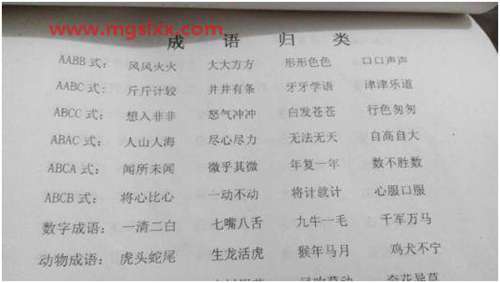 www.mgslxx.com
成语归类
AABB式：风风火火 大大方方 形形色色 口口声声
AABC式：斤斤计较 井井有条 牙牙学语 津津乐道
ABCC式：想入非非 怒气冲冲 白发苍苍 行色匆匆
ABAC式：人山人海 尽心尽力 无法无天 自高自大
ABCA式：闻所未闻 微乎其微 年复一年 数不胜数
ABCB式：将心比心 一动不动 将计就计 心服口服
数字成语：一清二白 七嘴八舌 九牛一毛 千军万马
动物成语：虎头蛇尾 生龙活虎 猴年马月 鸡犬不宁
奇花异草